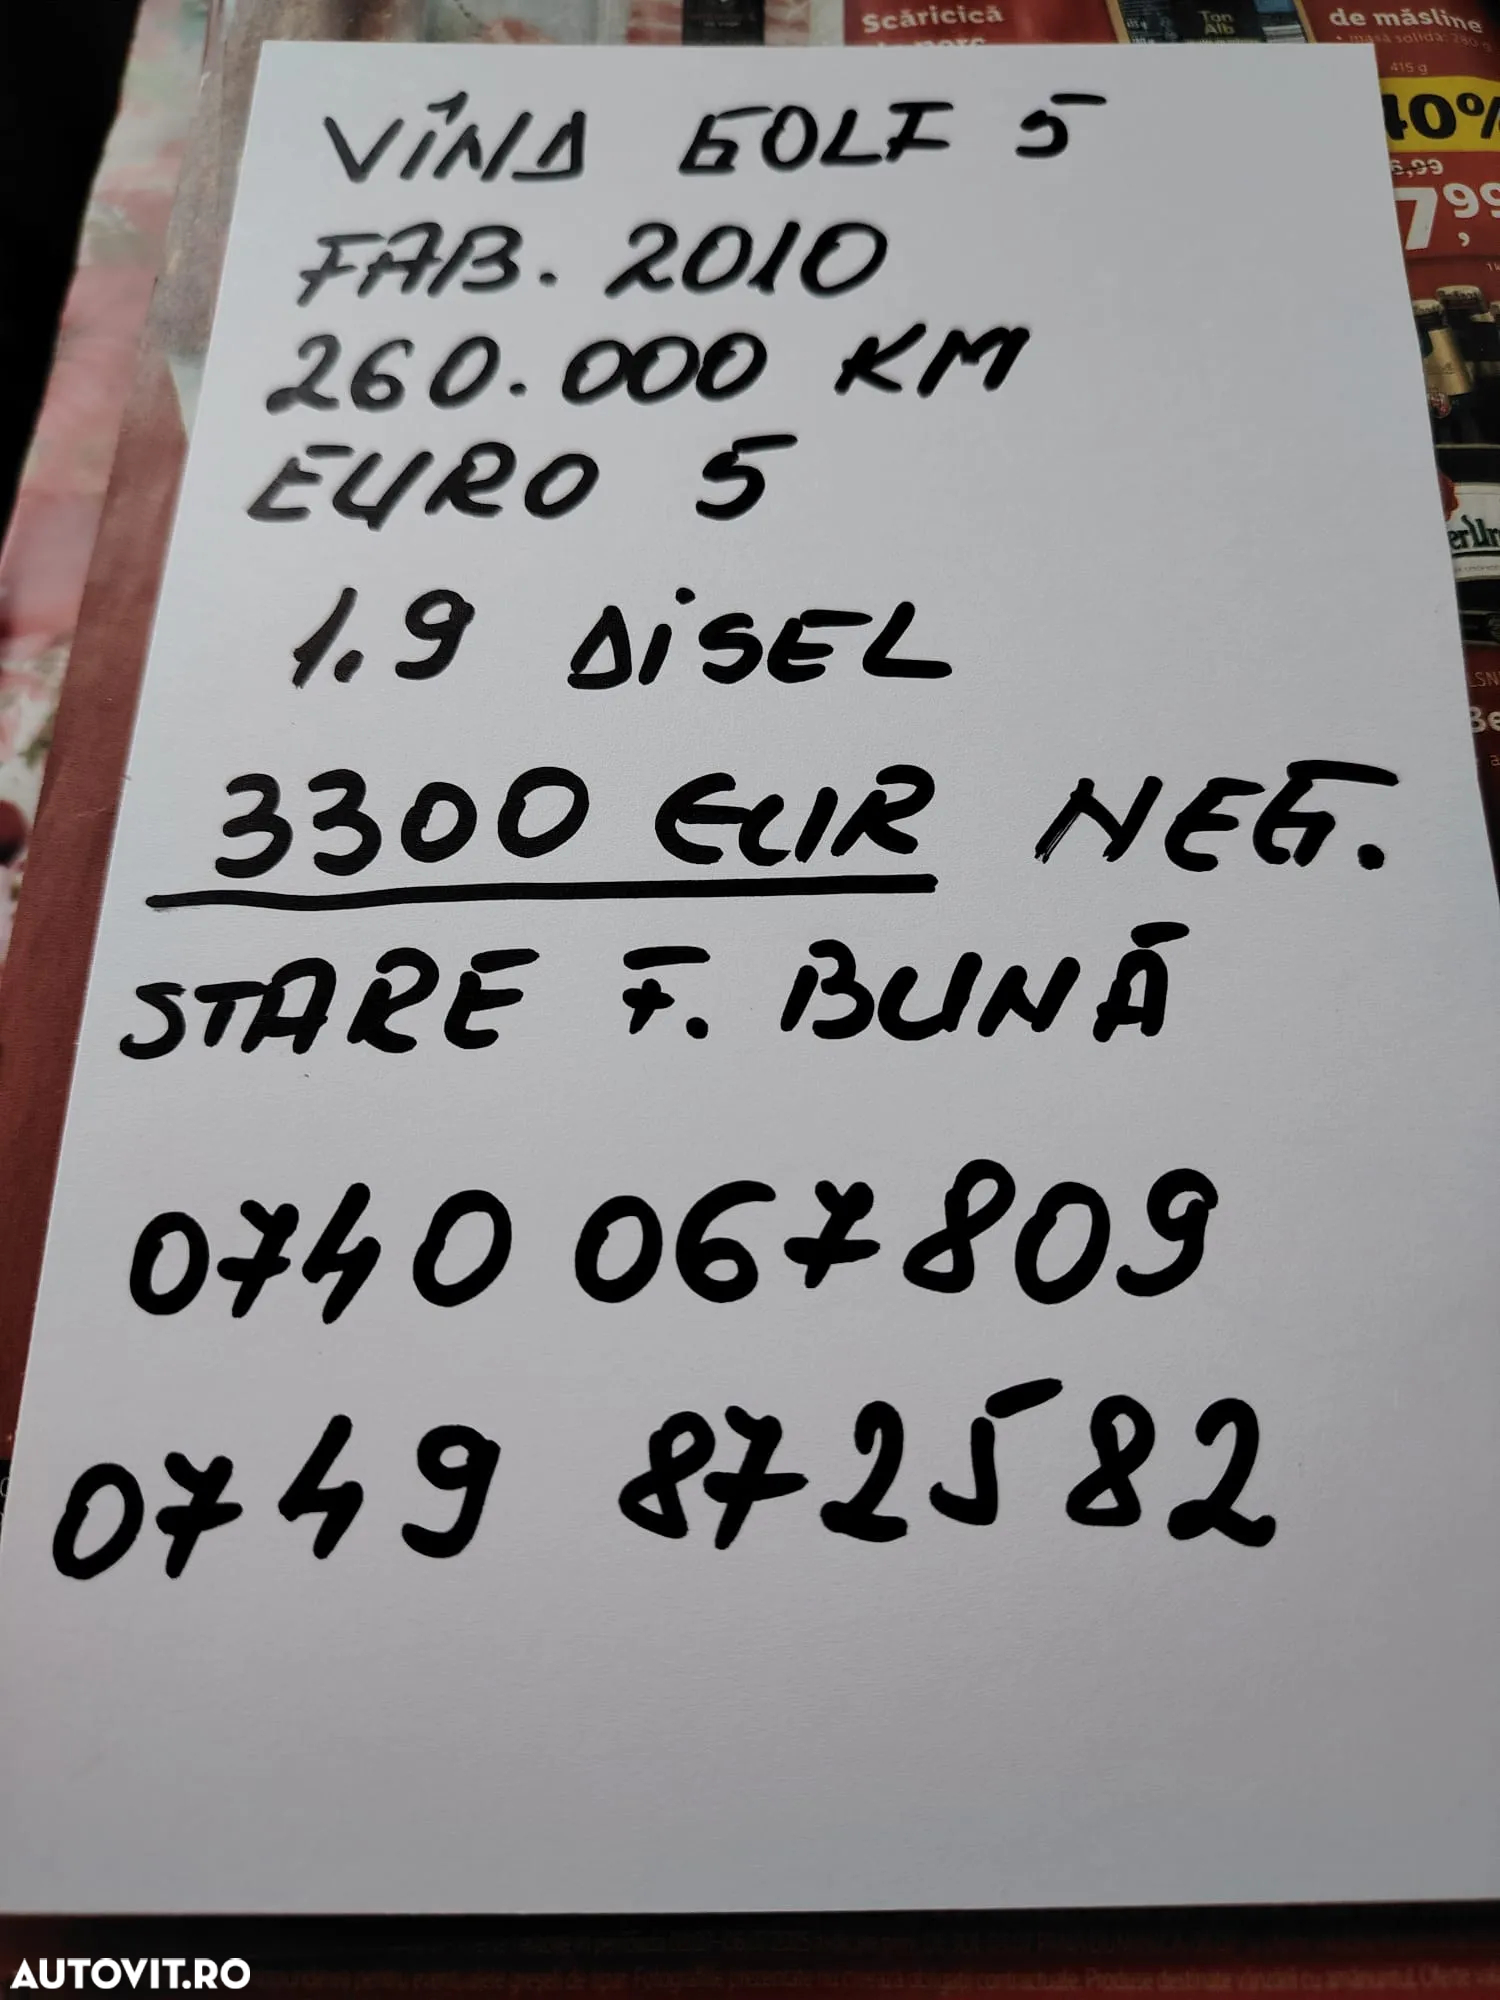 Scăricică
Ton
Alb
de măsline
• masă solidă: 280 g
415 g
40%
7,99
VÎND GOLF 5
FAB. 2010
260.000 KM
EURO 5
1.9 DISEL
3300 EUR NEG.
STARE F. BUNĂ
0740 067809
0749 872582
AUTOVIT.RO